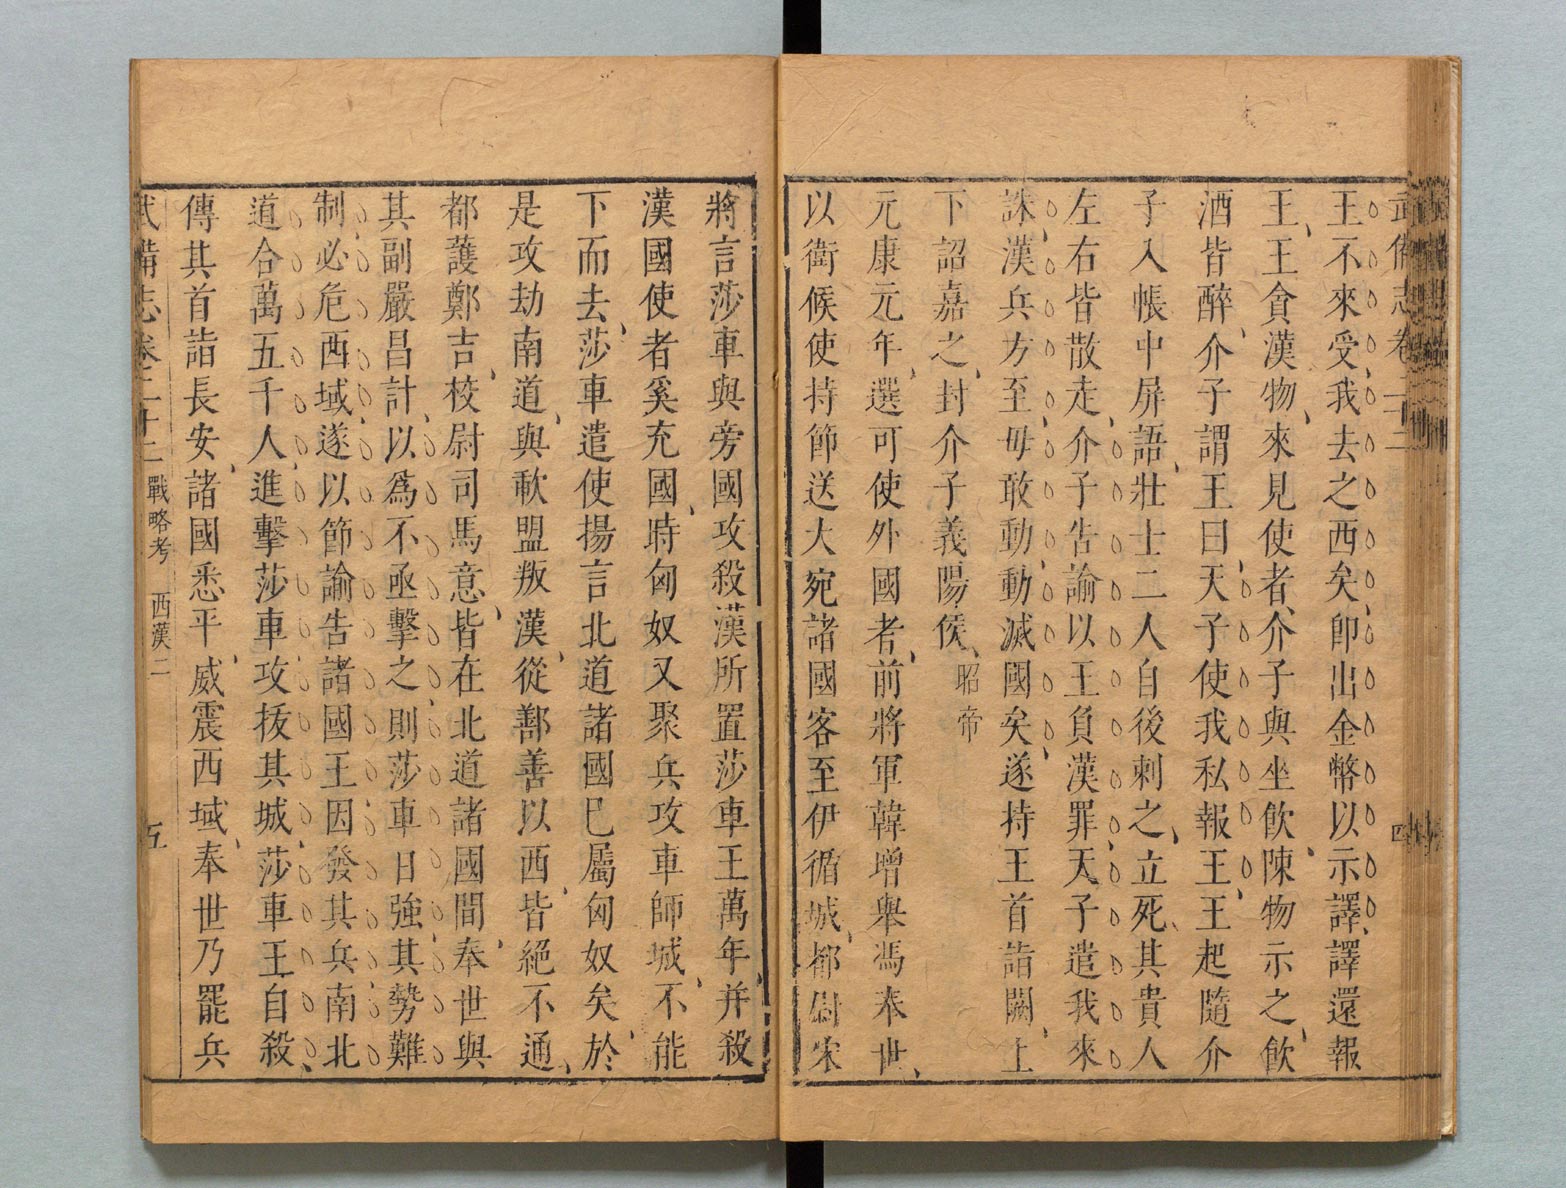 武備志卷二十二
四
王不來受我去之西矣卽出金幣以示譯譯還報
王王貪漢物來見使者介子與坐飮陳物示之飮
酒皆醉介子謂王曰天子使我私報王王起隨介
子入帳中屏語壯士二人自後刺之立死其貴人
左右皆散走介子告諭以王負漢罪天子遣我來
誅漢兵方至毋敢動動滅國矣遂持王首詣闕上
下詔嘉之封介子義陽侯昭帝
元康元年選可使外國者前將軍韓增舉馮奉世
以衛候使持節送大宛諸國客至伊循城都尉宋
將言莎車與旁國攻殺漢所置莎車王萬年并殺
漢國使者奚充國時匈奴又聚兵攻車師城不能
下而去莎車遣使揚言北道諸國已屬匈奴矣於
是攻劫南道與歃盟叛漢從鄯善以西皆絕不通
都護鄭吉校尉司馬意皆在北道諸國間奉世與
其副嚴昌計以爲不亟擊之則莎車日強其勢難
制必危西域遂以節諭告諸國王因發其兵南北
道合萬五千人進擊莎車攻拔其城莎車王自殺
傳其首詣長安諸國悉平威震西域奉世乃罷兵
武備志卷二十二 戰略考 西漢二
五